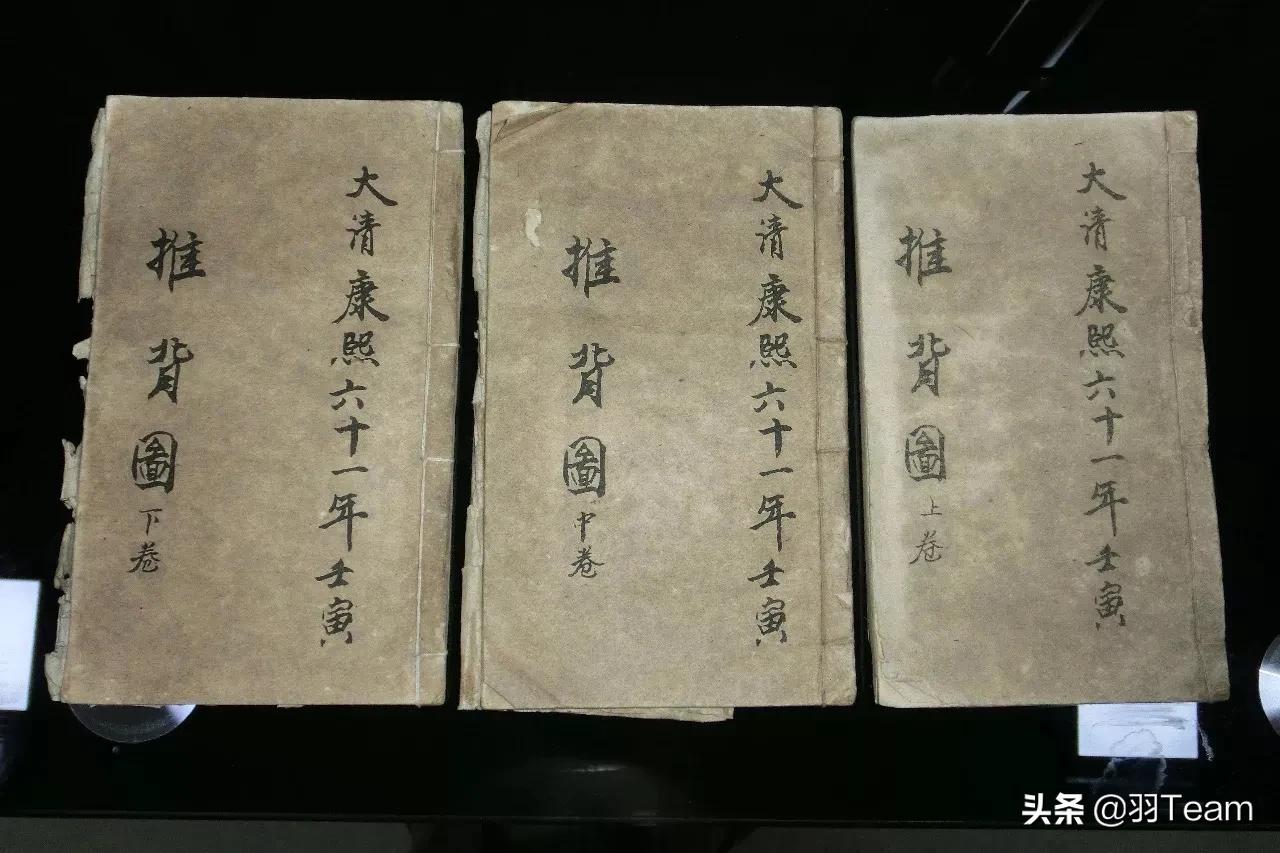 大清康熙六十一年壬寅
推背圖上卷
大清康熙六十一年壬寅
推背圖中卷
大清康熙六十一年壬寅
推背圖下卷
头条 @羽Team